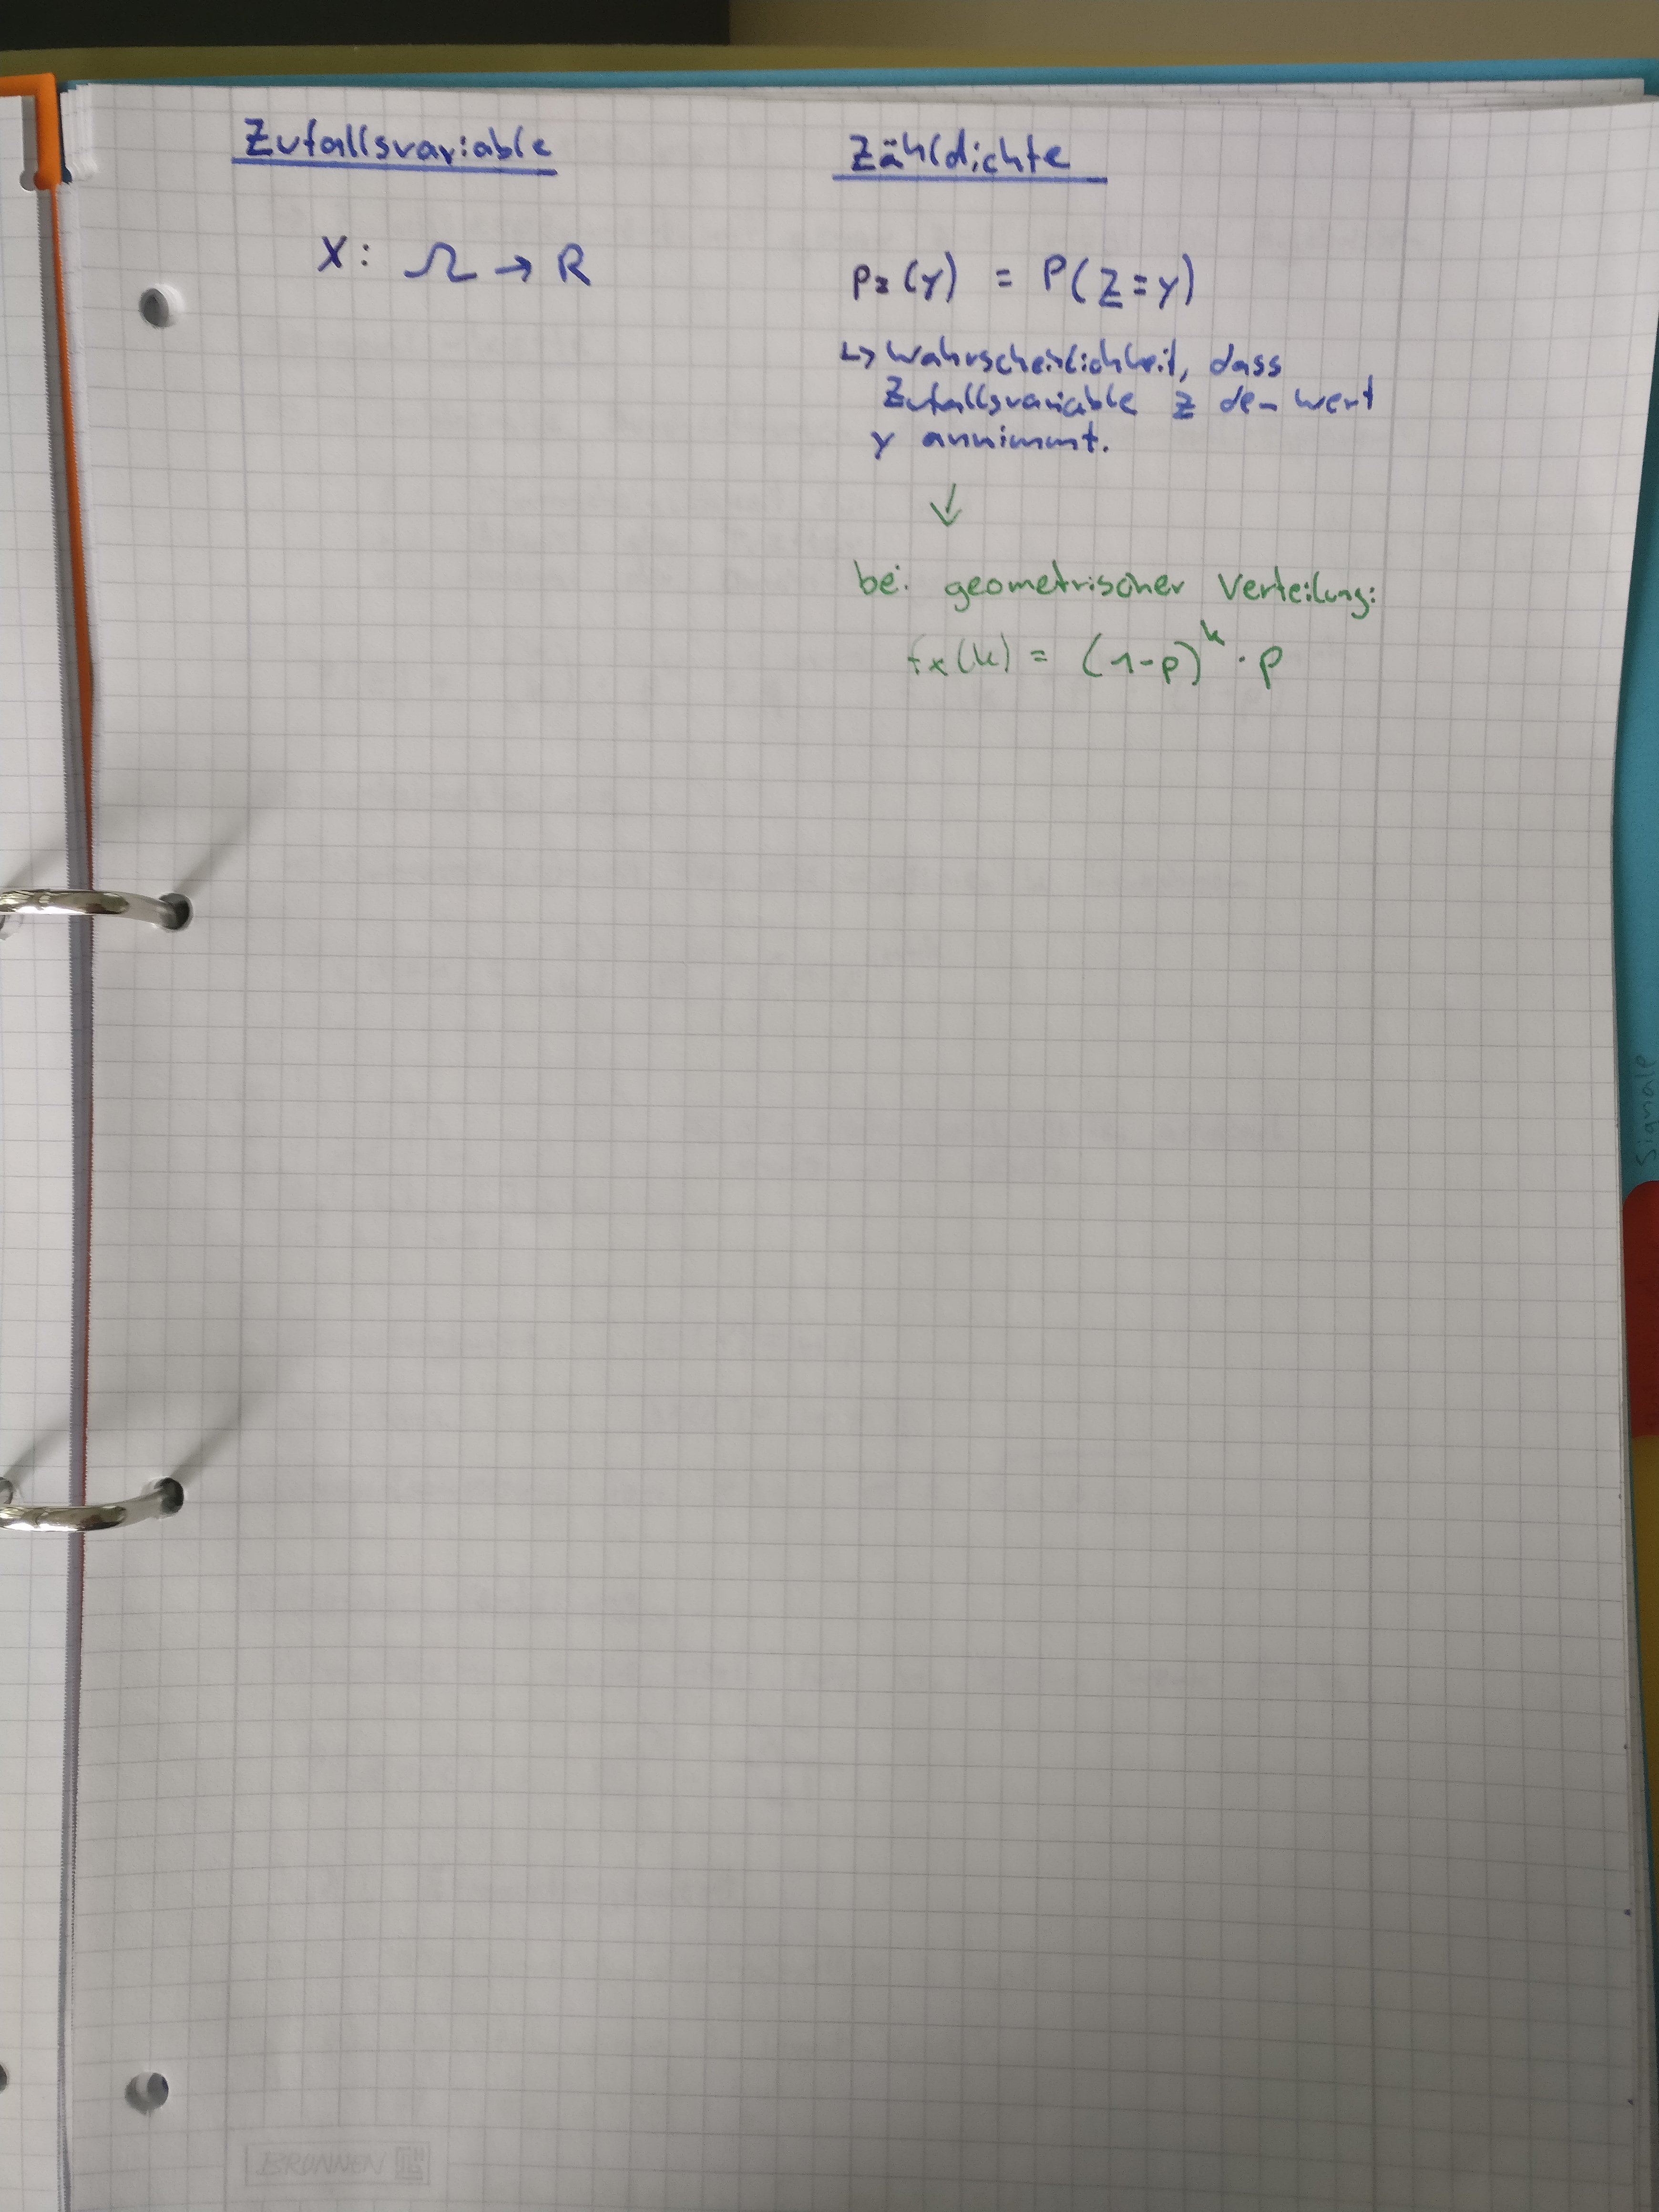 Zufallsvariable
X: Ω → R
Zähldichte
pz(y) = P(Z=y)
↳ Wahrscheinlichkeit, dass
Zufallsvariable z den Wert
y annimmt.
↓
bei geometrischer Verteilung:
fx(k) = (1-p)^k · p
Signale
BRUNNEN